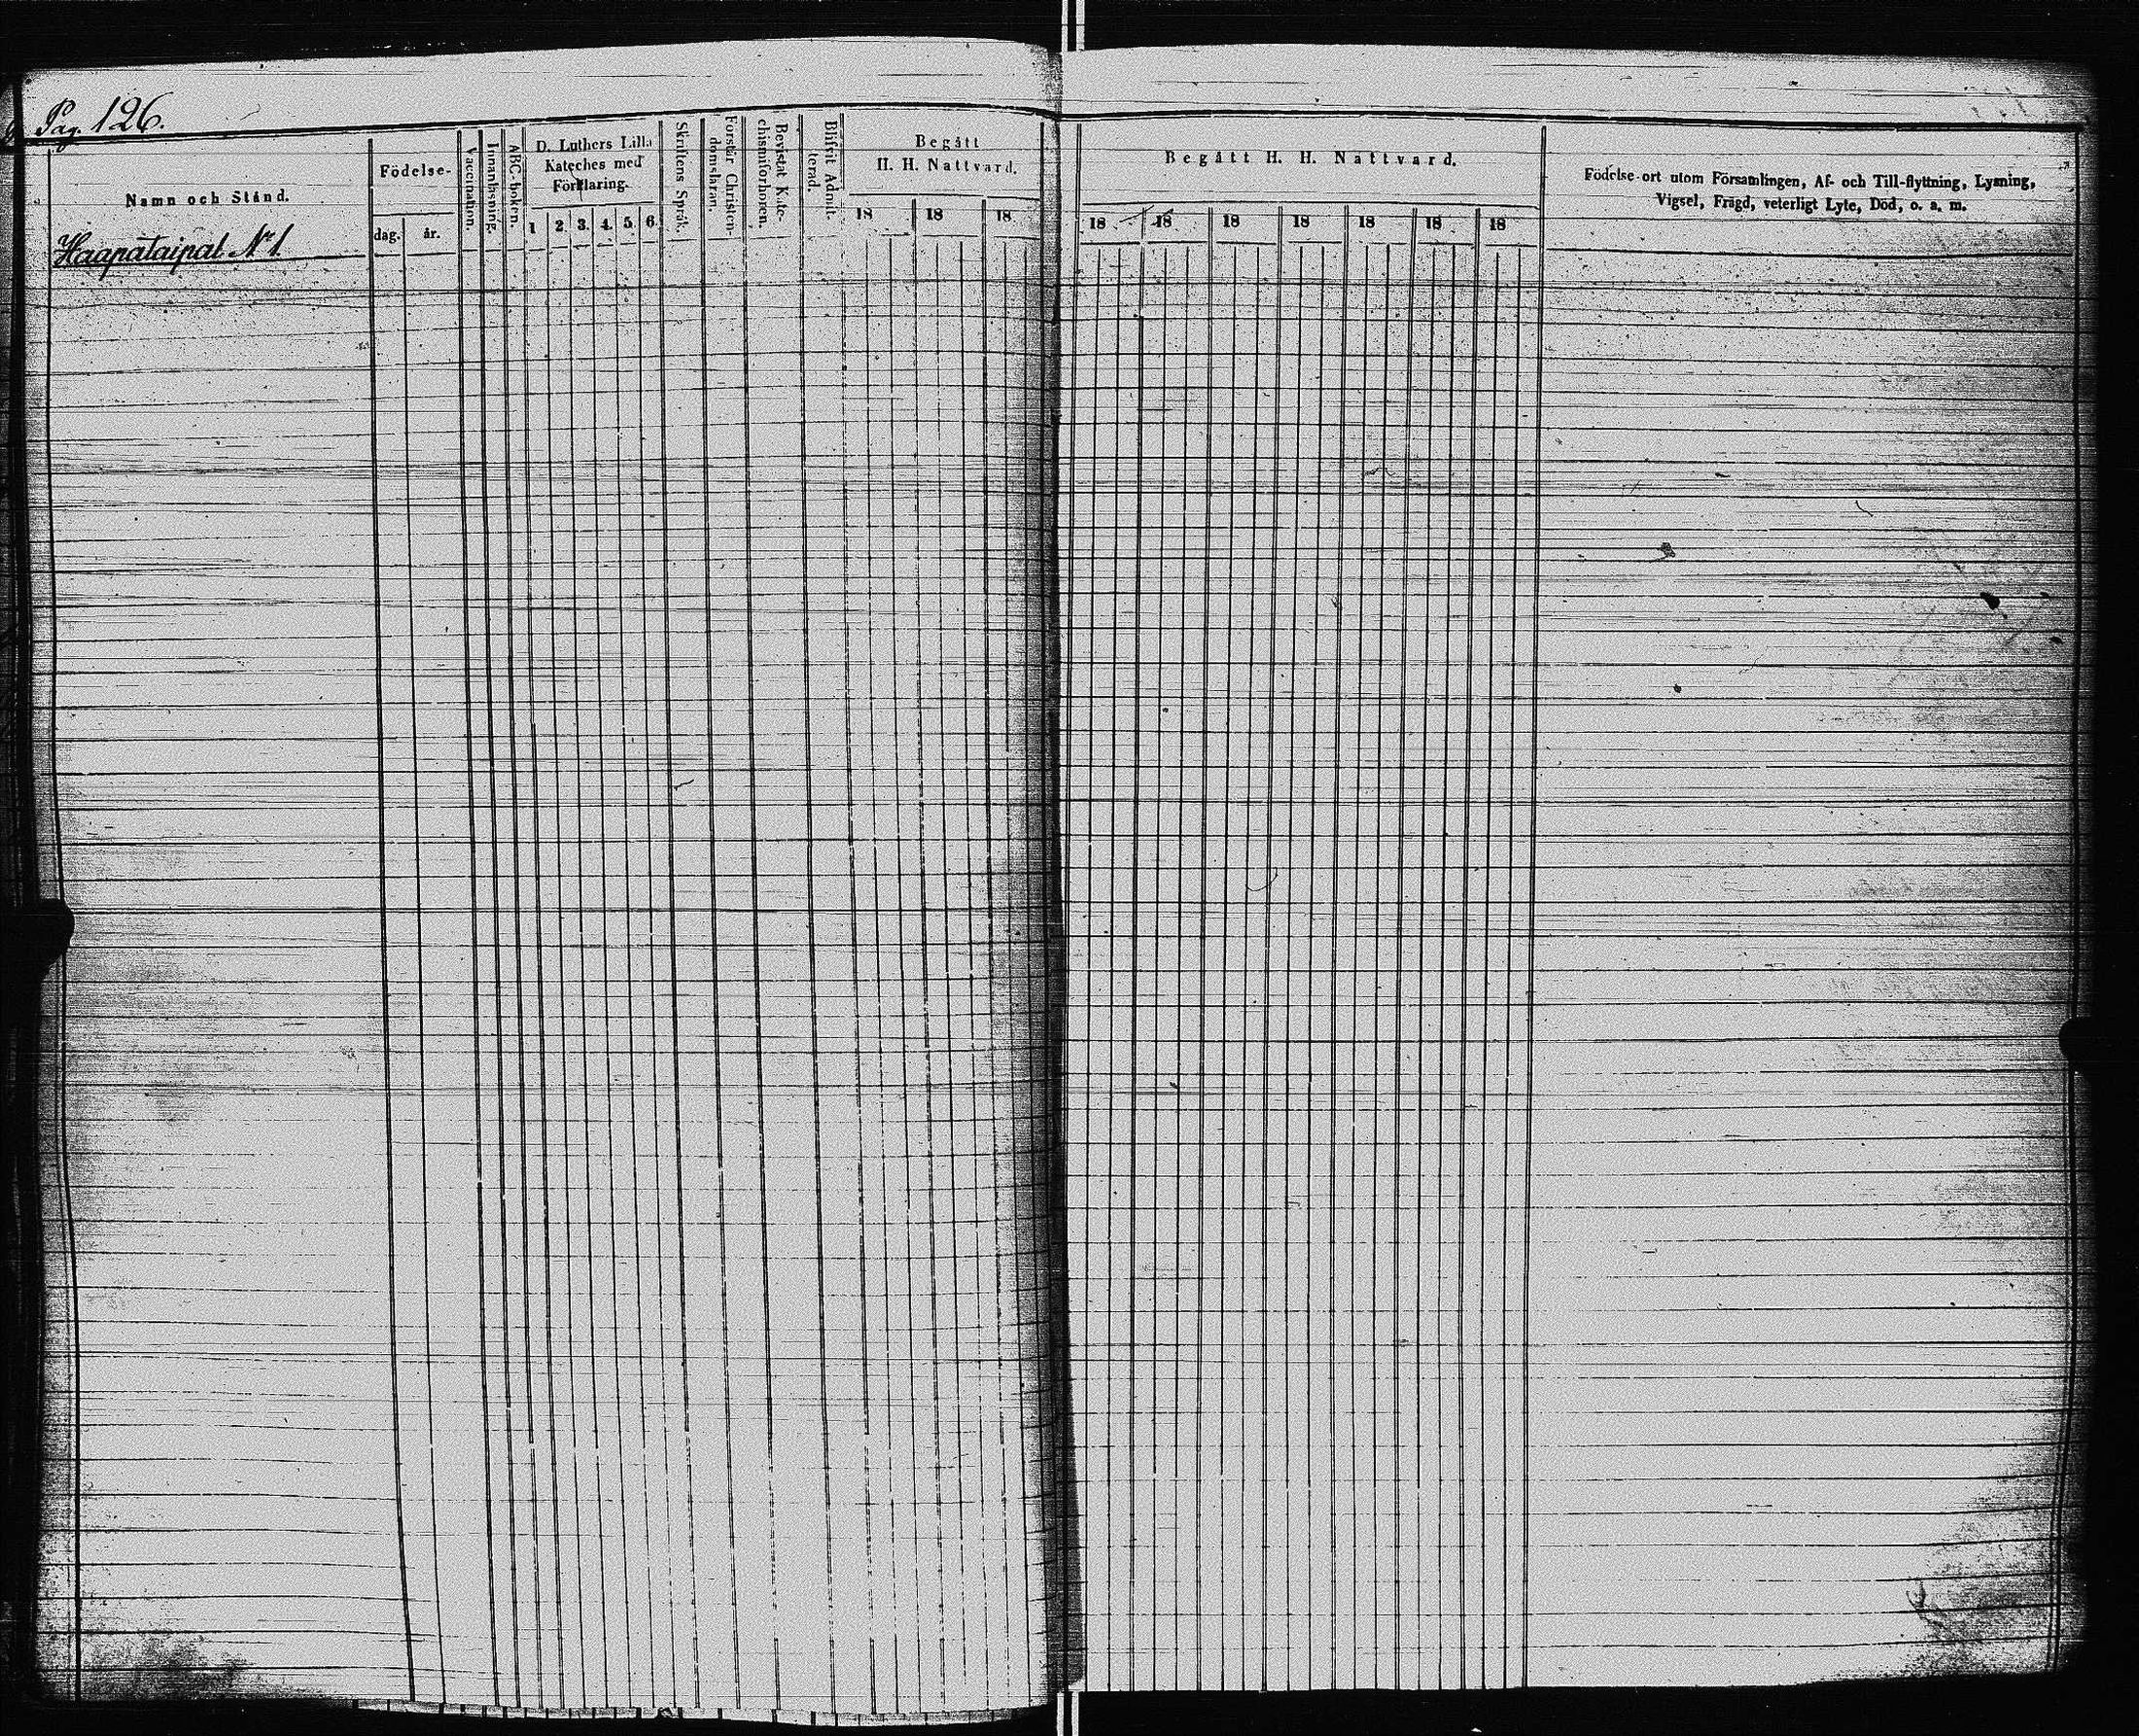 Pag. 126.
Namn och Stånd.
Födelse-
dag.
år.
Vaccination.
Innanläsning.
ABC-boken.
D. Luthers Lilla
Kateches med
Förklaring.
1 2 3. 4. 5. 6
Skriftens Språk.
Förstår Christen-
domsläran.
Bevistat Kate-
chismiförhören.
Blifvit Admit-
terad.
Begått
H. H. Nattvard.
18 18 18
Begått H. H. Nattvard.
18 18 18 18 18 18 18
Födelse-ort utom Församlingen, Af- och Till-flyttning, Lysning,
Vigsel, Frägd, veterligt Lyte, Död, o. s. m.
Haapataipal Nr 1.